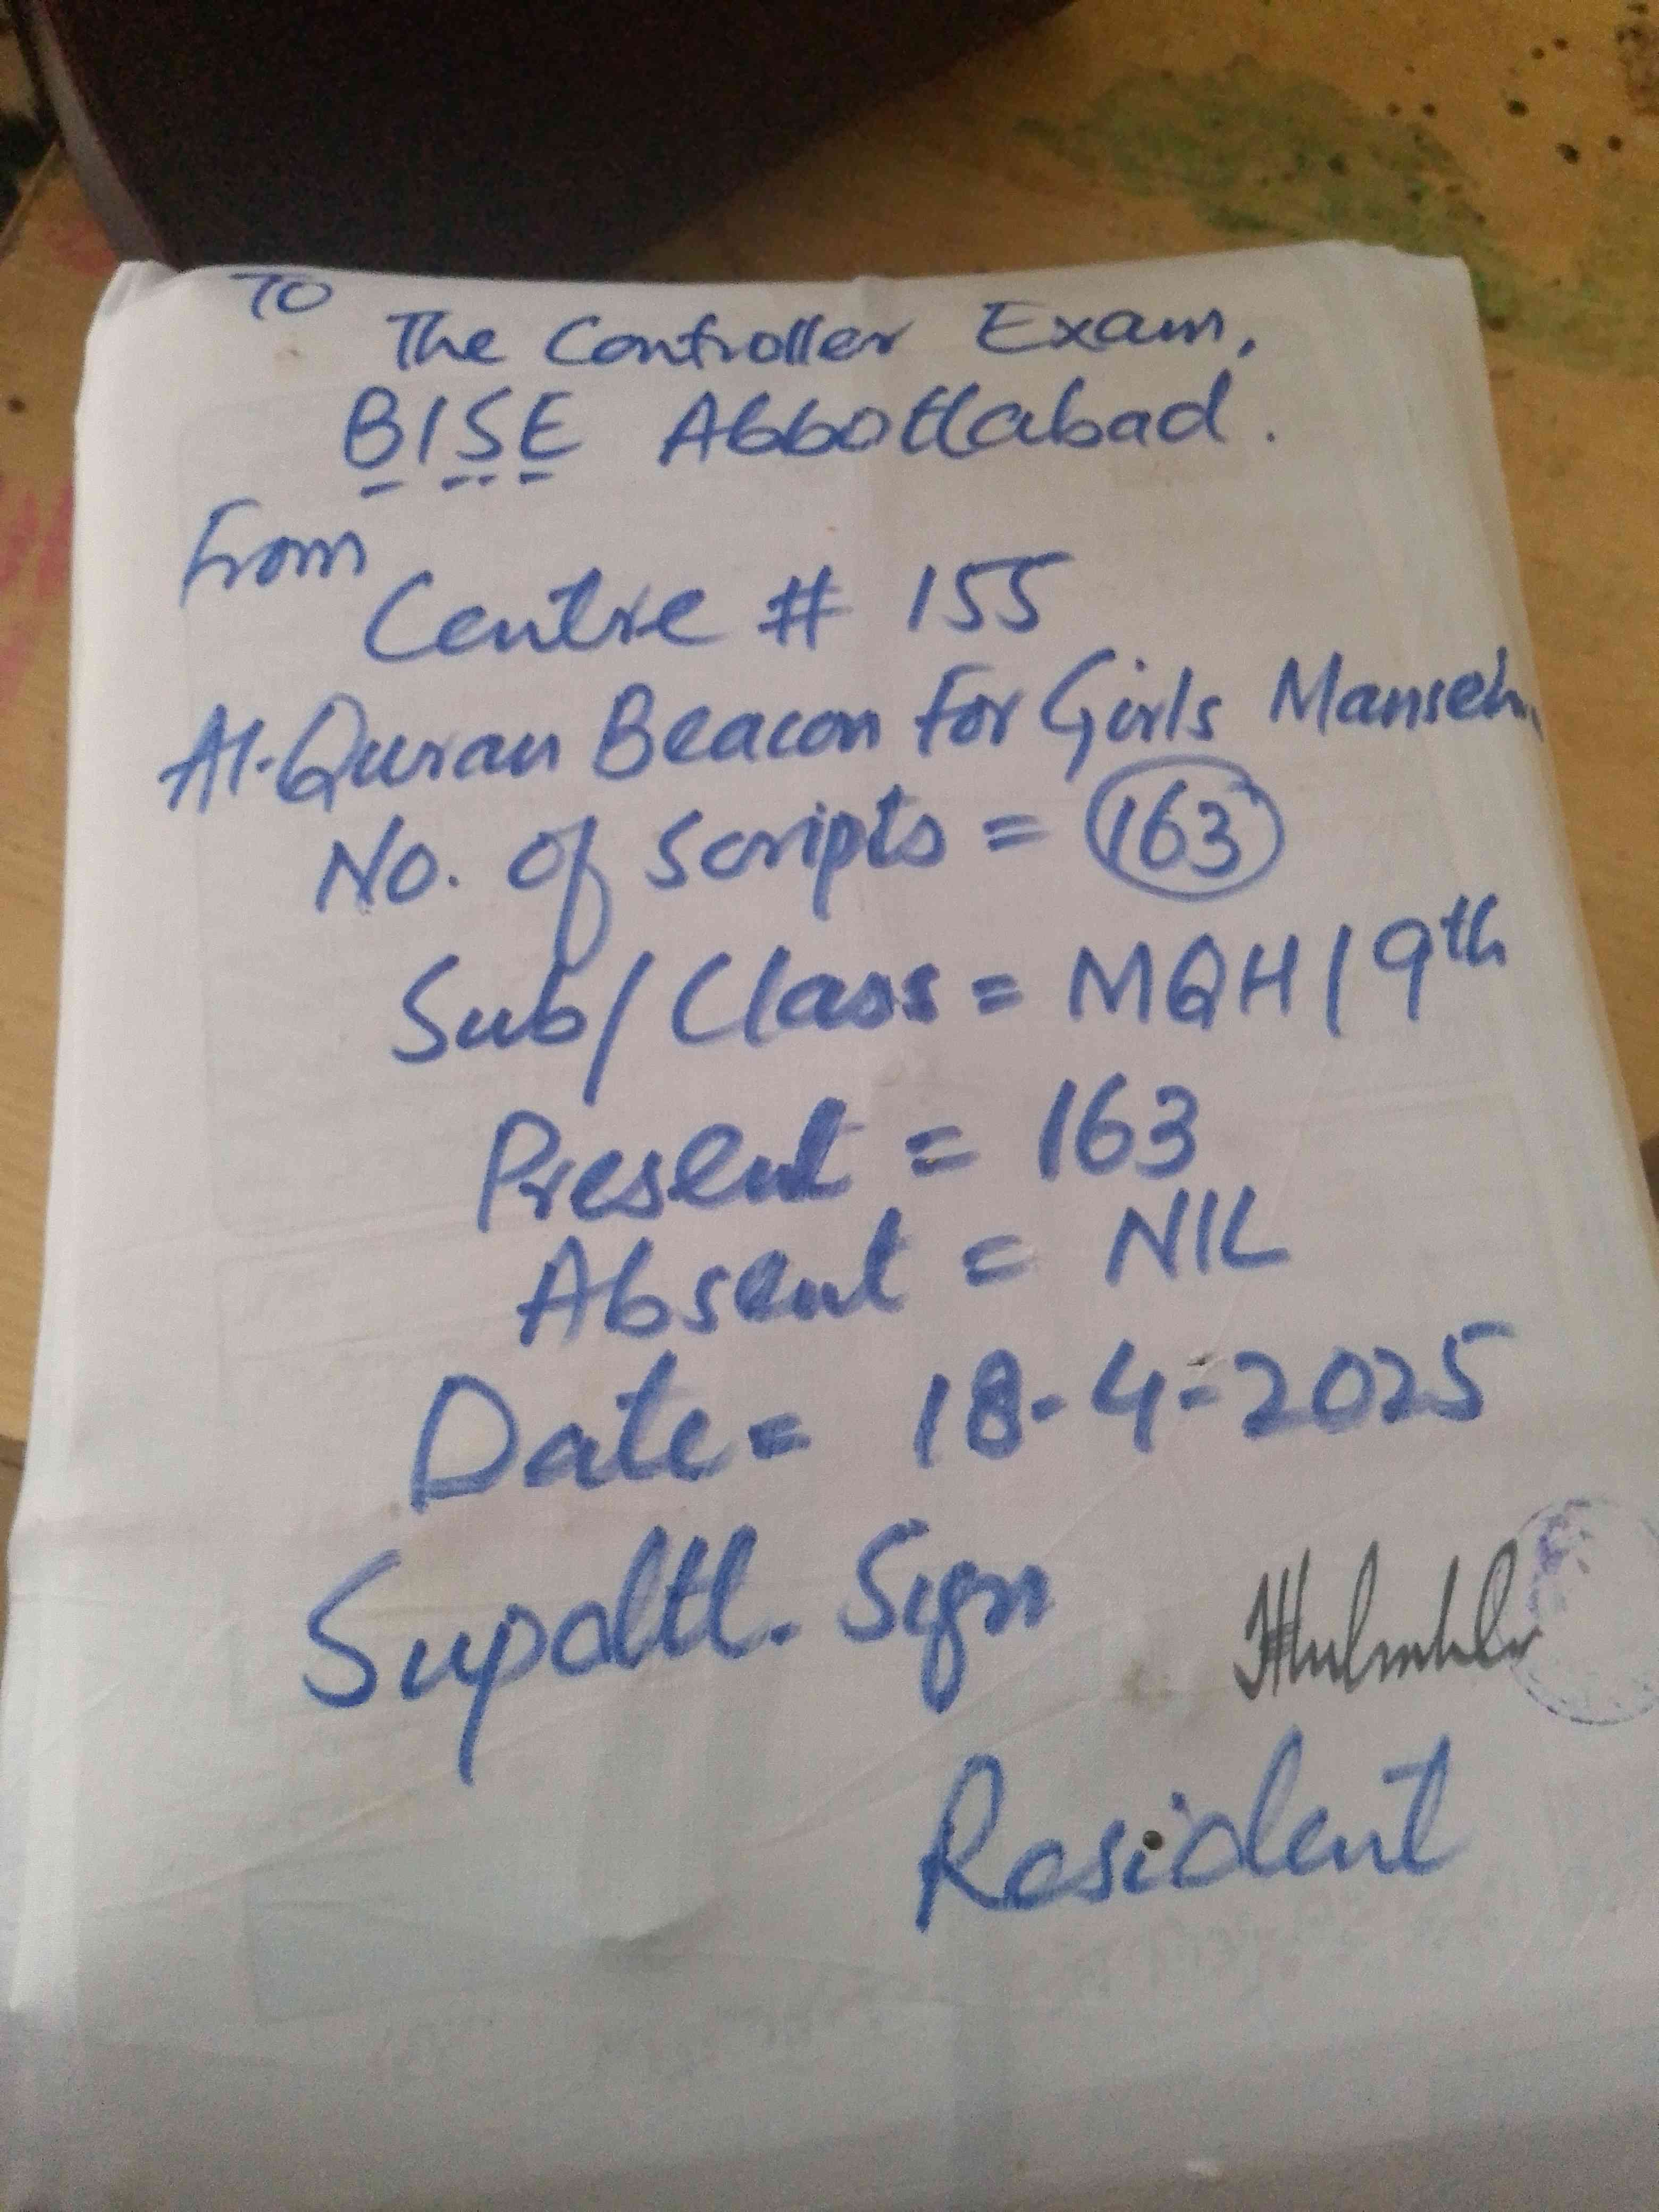 To
The Controller Exam,
BISE Abbottabad.
From
Centre # 155
Al-Quran Beacon For Girls
No. of scripts = 163
Sub/Class = MQH/9th
Present = 163
Absent = NIL
Date = 18-4-2025
Supdtt. Sign
Resident